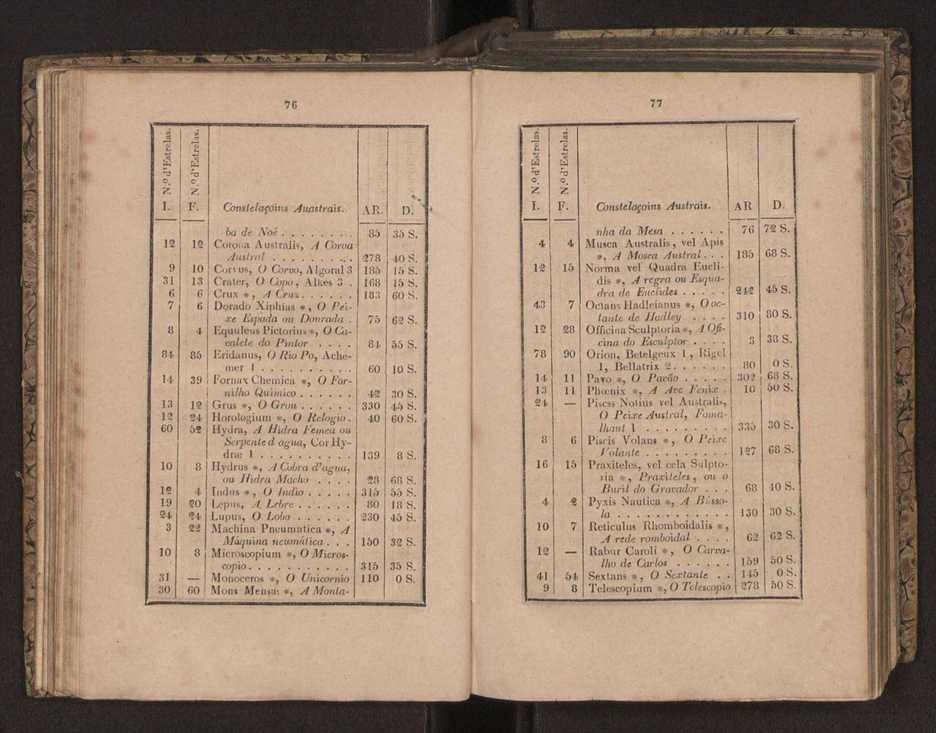 76
N.º d'Estrelas. N.º d'Estrelas.
I. F. Constelaçoins Auastrais. AR. D.
ba de Noé . . . . . . . . 85 35 S.
12 12 Corona Australis, A Coroa
Austral . . . . . . . . . 278 40 S.
9 10 Corvus, O Corvo, Algoral 3 185 15 S.
31 13 Crater, O Copo, Alkes 3 . 168 15 S.
6 6 Crux *, A Crus . . . . . . 183 60 S.
7 6 Dorado Xiphias *, O Pei-
xe Espada ou Dourada . 75 62 S.
8 4 Equuleus Pictorius *, O Ca-
valete do Pintor . . . . 84 55 S.
84 85 Eridanus, O Rio Po, Ache-
mer 1 . . . . . . . . . . 60 10 S.
14 39 Fornax Chemica *, O For-
nilho Quimico . . . . . . 42 30 S.
13 12 Grus *, O Grou . . . . . . 330 45 S.
12 24 Horologium *, O Relogio . 40 60 S.
60 52 Hydra, A Hidra Femea ou
Serpente d agua, Cor Hy-
dræ 1 . . . . . . . . . . 139 8 S.
10 8 Hydrus *, A Cobra d'agua,
ou Hidra Macho . . . . 28 68 S.
12 4 Indus *, O Indio . . . . . 315 55 S.
19 20 Lepus, A Lebre . . . . . . 80 18 S.
24 24 Lupus, O Lobo . . . . . . 230 45 S.
3 22 Machina Pneumatica *, A
Máquina neumática . . . 150 32 S.
10 8 Microscopium *, O Micros-
copio . . . . . . . . . . . 315 35 S.
31 — Monoceros *, O Unicornio 110 0 S.
30 60 Mons Mensæ *, A Monta-
77
N.º d'Estrelas. N.º d'Estrelas.
I. F. Constelaçoins Austrais. AR D.
nha da Mesa . . . . . . 76 72 S.
4 4 Musca Australis, vel Apis
*, A Mosca Austral . . . 185 68 S.
12 15 Norma vel Quadra Eucli-
dis *, A regra ou Esqua-
dra de Euclides . . . . . 242 45 S.
43 7 Octans Hadleianus *, O oc-
tante de Hadley . . . . 310 80 S.
12 28 Officina Sculptoria *, A Ofi-
cina do Esculptor . . . . 3 38 S.
78 90 Orion, Betelgeux 1, Rigel
1, Bellatrix 2 . . . . . . 80 0 S.
14 11 Pavo *, O Pavão . . . . . 302 68 S.
13 11 Phœnix *, A Ave Fenix . 10 50 S.
24 — Pisces Notius vel Australis,
O Peixe Austral, Foma-
lhaut 1 . . . . . . . . . 335 30 S.
8 6 Piscis Volans *, O Peixe
Volante . . . . . . . . . 127 68 S.
16 15 Praxiteles, vel cela Sulpto-
ria *, Praxiteles, ou o
Buril do Gravador . . . 68 40 S.
4 2 Pyxis Nautica *, A Busso-
la . . . . . . . . . . . . 130 30 S.
10 7 Reticulus Rhomboidalis *,
A rede romboidal . . . . 62 62 S.
12 — Rabur Caroli *, O Carva-
lho de Carlos . . . . . . 159 50 S.
41 54 Sextans *, O Sextante . . 145 0 S.
9 8 Telescopium *, O Telescopio 278 50 S.